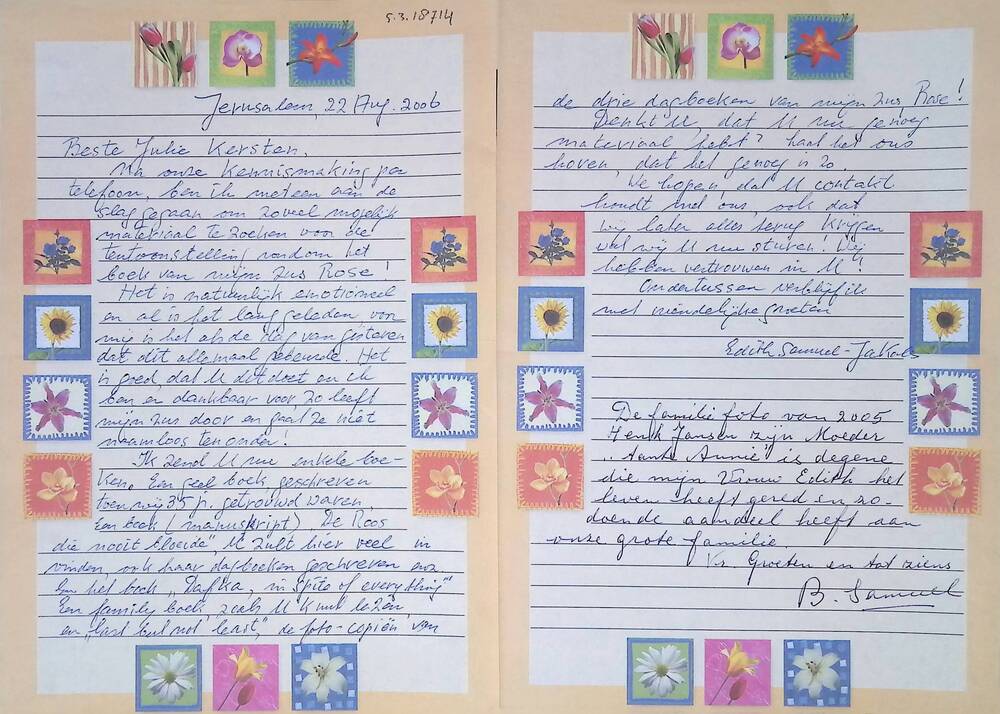 5.3.18714
Jerusalem, 22 Aug. 2006
Beste Julie Kersten,
Na onze kennismaking per
telefoon, ben ik meteen aan de
slag gegaan om zoveel mogelijk
materiaal te zoeken voor die
tentoonstelling rondom het
boek van mijn zus Rose!
Het is natuurlijk emotioneel
en al is het lang geleden voor
mij is het als de dag van gisteren
dat dit allemaal gebeurde. Het
is goed, dat U dit doet en ik
ben er dankbaar voor zo leeft
mijn zus door en gaat ze niet
naamloos ten onder!
Ik zend U nu enkele boe-
ken. Een geel boek geschreven
toen wij 35 j. getrouwd waren
Een boek (manuskript) "De Roos
die nooit bloeide", U zult hier veel in
vinden, ook haar dagboeken geschreven enz.
En het boek "Dafka, in spite of everything"
Een family boek, zoals U kunt lezen,
en "last but not least", de foto-copiën van
de drie dagboeken van mijn zus Rose!
Denkt U, dat U nu genoeg
materiaal hebt? Laat het ons
horen, dat het genoeg is zo.
We hopen dat U contakt
houdt met ons, ook dat
wij later alles terug krijgen
wat wij U nu sturen! Wij
hebben vertrouwen in U!
Ondertussen verblijf ik
met vriendelijke groeten
Edith Samuel-Jakobs
De familie foto van 2005
Henk Jansen zijn Moeder
"tante Annie" is degene
die mijn Vrouw Edith het
leven heeft gered en zo-
doende aandeel heeft aan
onze grote familie
Vr. Groeten en tot ziens
B. Samuel